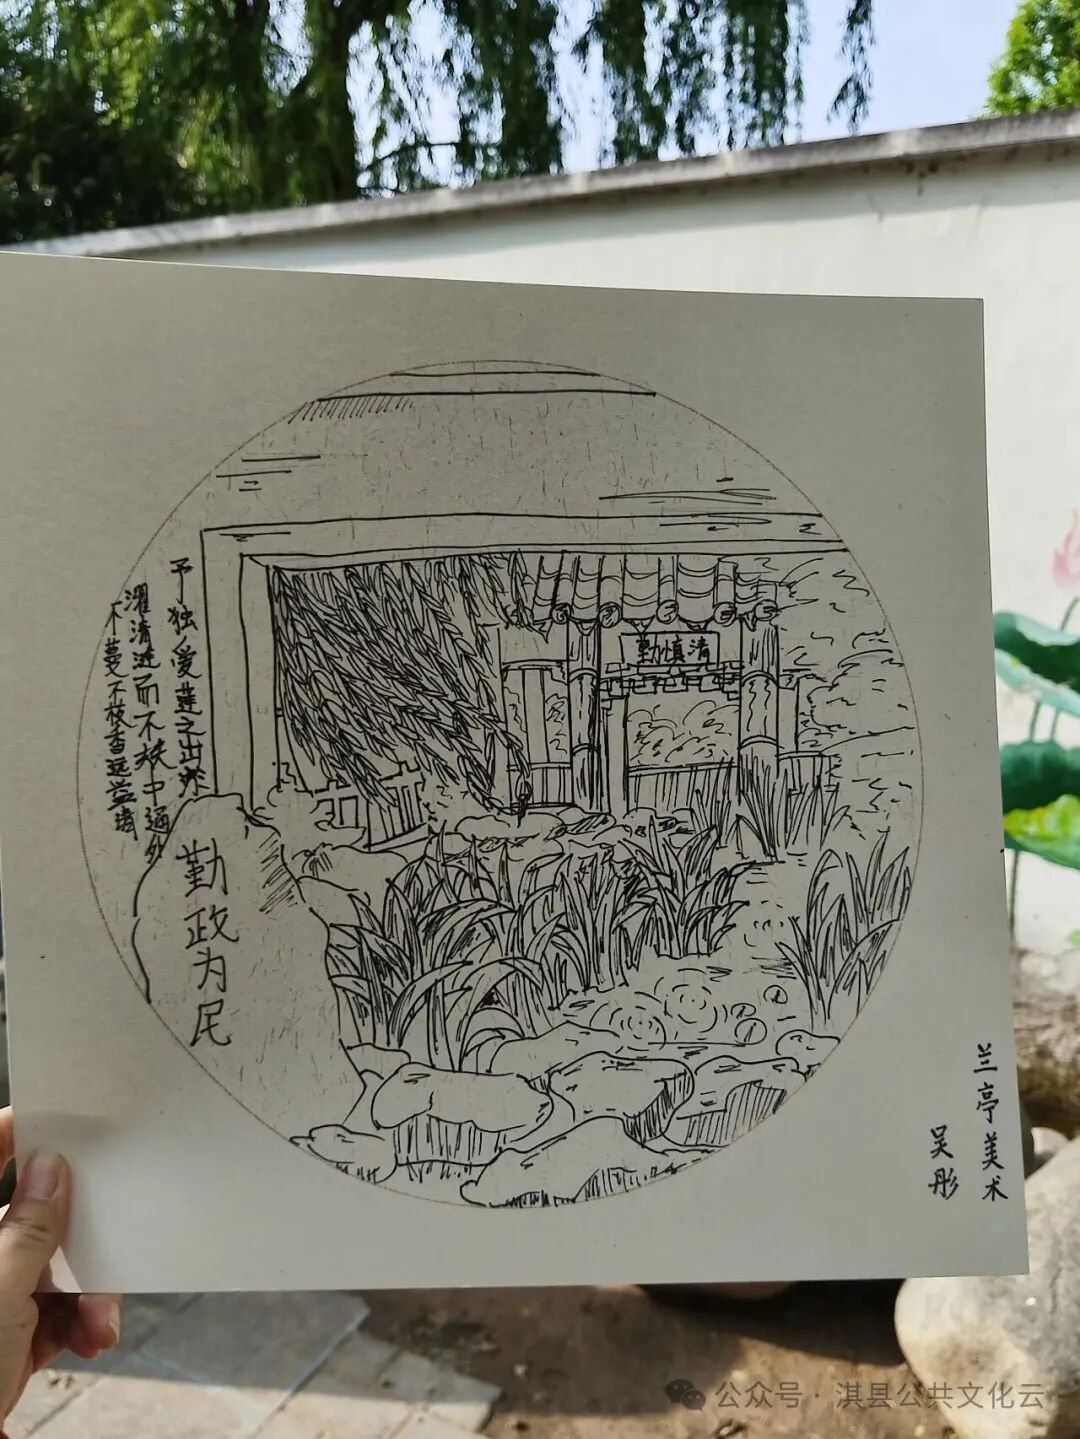 清慎勤
予独爱莲之出淤
濯清涟而不妖中通外
不蔓不枝香远益清
勤政为民
兰亭美术
吴彤
公众号·淇县公共文化云